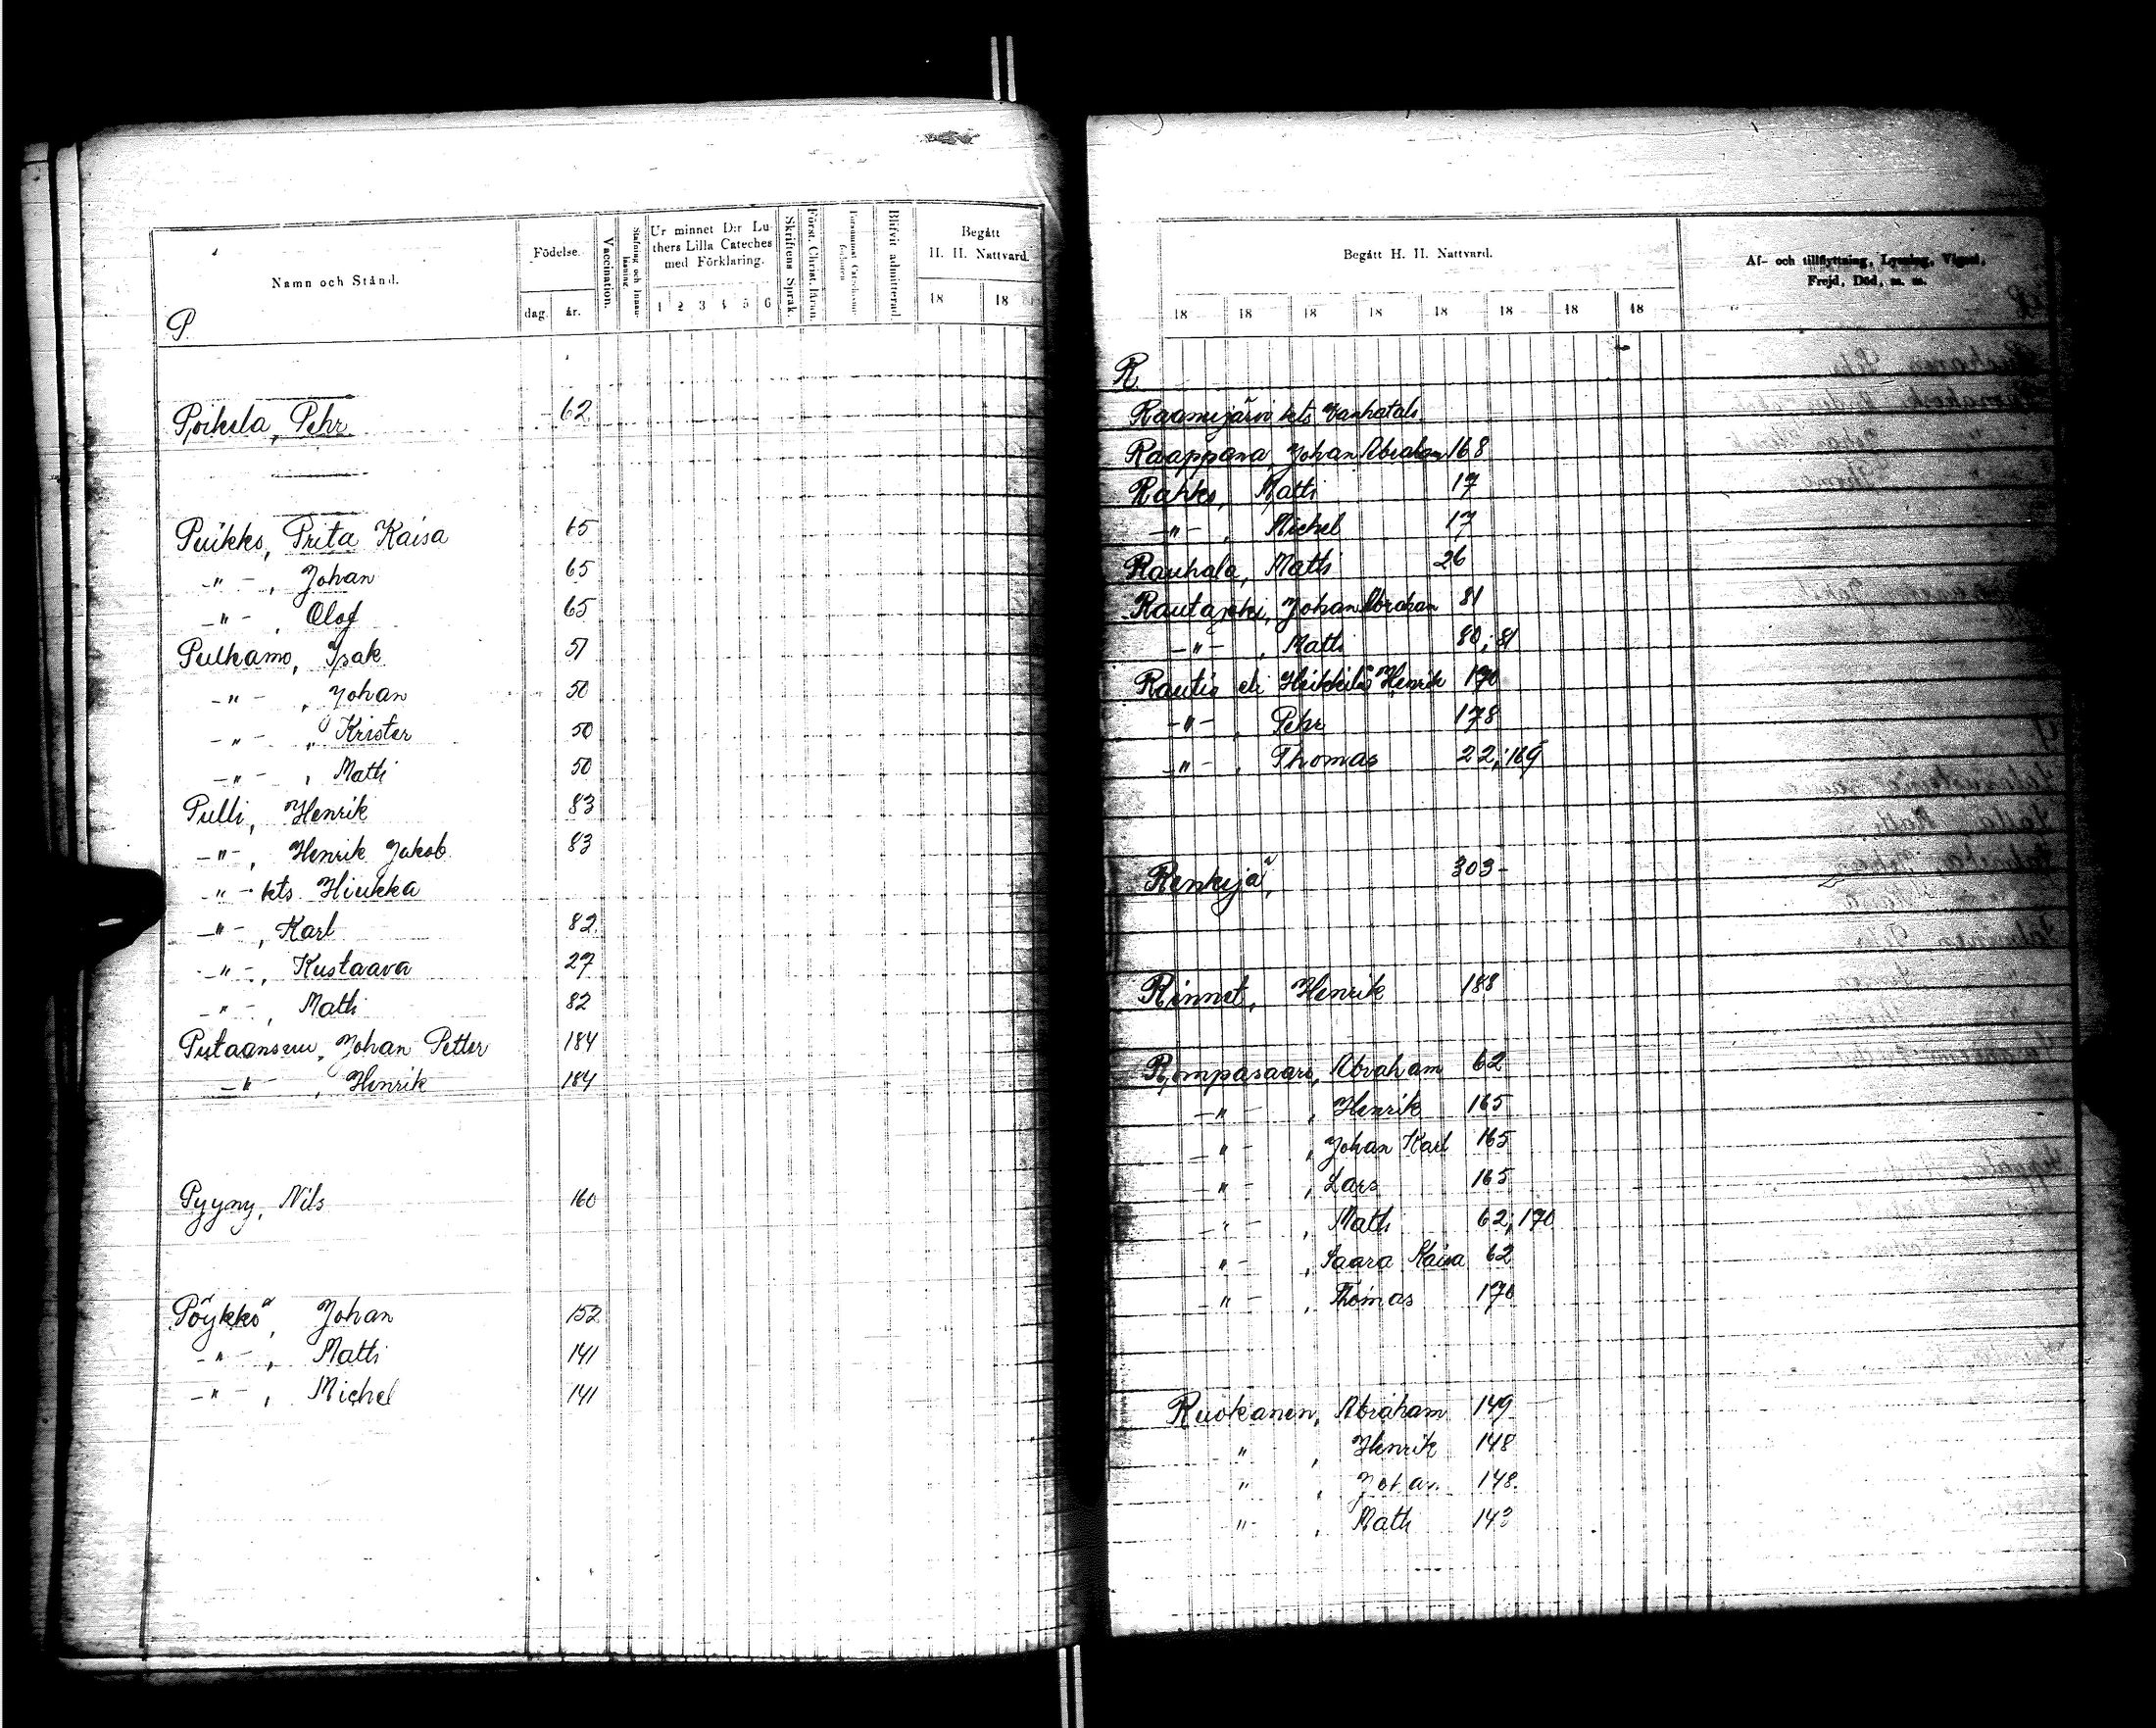 Namn och Stånd.
Födelse.
dag.
år.
Vaccination.
Ur minnet D:r Lu-
thers Lilla Cateches
med Förklaring.
1 2 3 4 5 6
Skriftens Språk.
Först. Christ. läran.
Blifvit admitterad
Begått
H. H. Nattvard.
18 18
P.
Poikela, Pehr 62
Puikko, Prita Kaisa 65
-"- , Johan 65
-"- , Olof 65
Pulkamo, Isak 51
-"- , Johan 50
-"- , Krister 50
-"- , Matti 50
Pulli, Henrik 83
-"-, Henrik Jakob 83
-"- kts Hiukka
-"-, Karl 82
-"-, Kustaava 27
-"-, Matti 82
Putaansuu, Johan Petter 184
-"- , Henrik 184
Pyyny, Nils 160
Pöykkö, Johan 152
-"- , Matti 141
-"- , Michel 141
Begått H. H. Nattvard.
18 18 18 18 18 18 18 18
Af- och tillflyttning, Lysning, Vigsel,
Frejd, Död, m. m.
R.
Raanujärvi kts Vanhatalo
Raappana, Johan Abraham 168
Rahko, Matti 17
-"- , Michel 17
Rauhala, Matti 26
Rautajoki, Johan Abraham 81
-"- , Matti 80; 81
Rautio eli Heikkilä Henrik 170
-"- , Pehr 178
-"- , Thomas 22; 169
Renkyjä, 303-
Rinnet, Henrik 188
Rompasaari, Abraham 62
-"- , Henrik 165
-"- , Johan Karl 165
-"- , Lars 165
-"- , Matti 62; 170
-"- , Saara Kaisa 62
-"- , Thomas 170
Ruokanen, Abraham 149
" , Henrik 148
" , Johan 148.
" , Matti